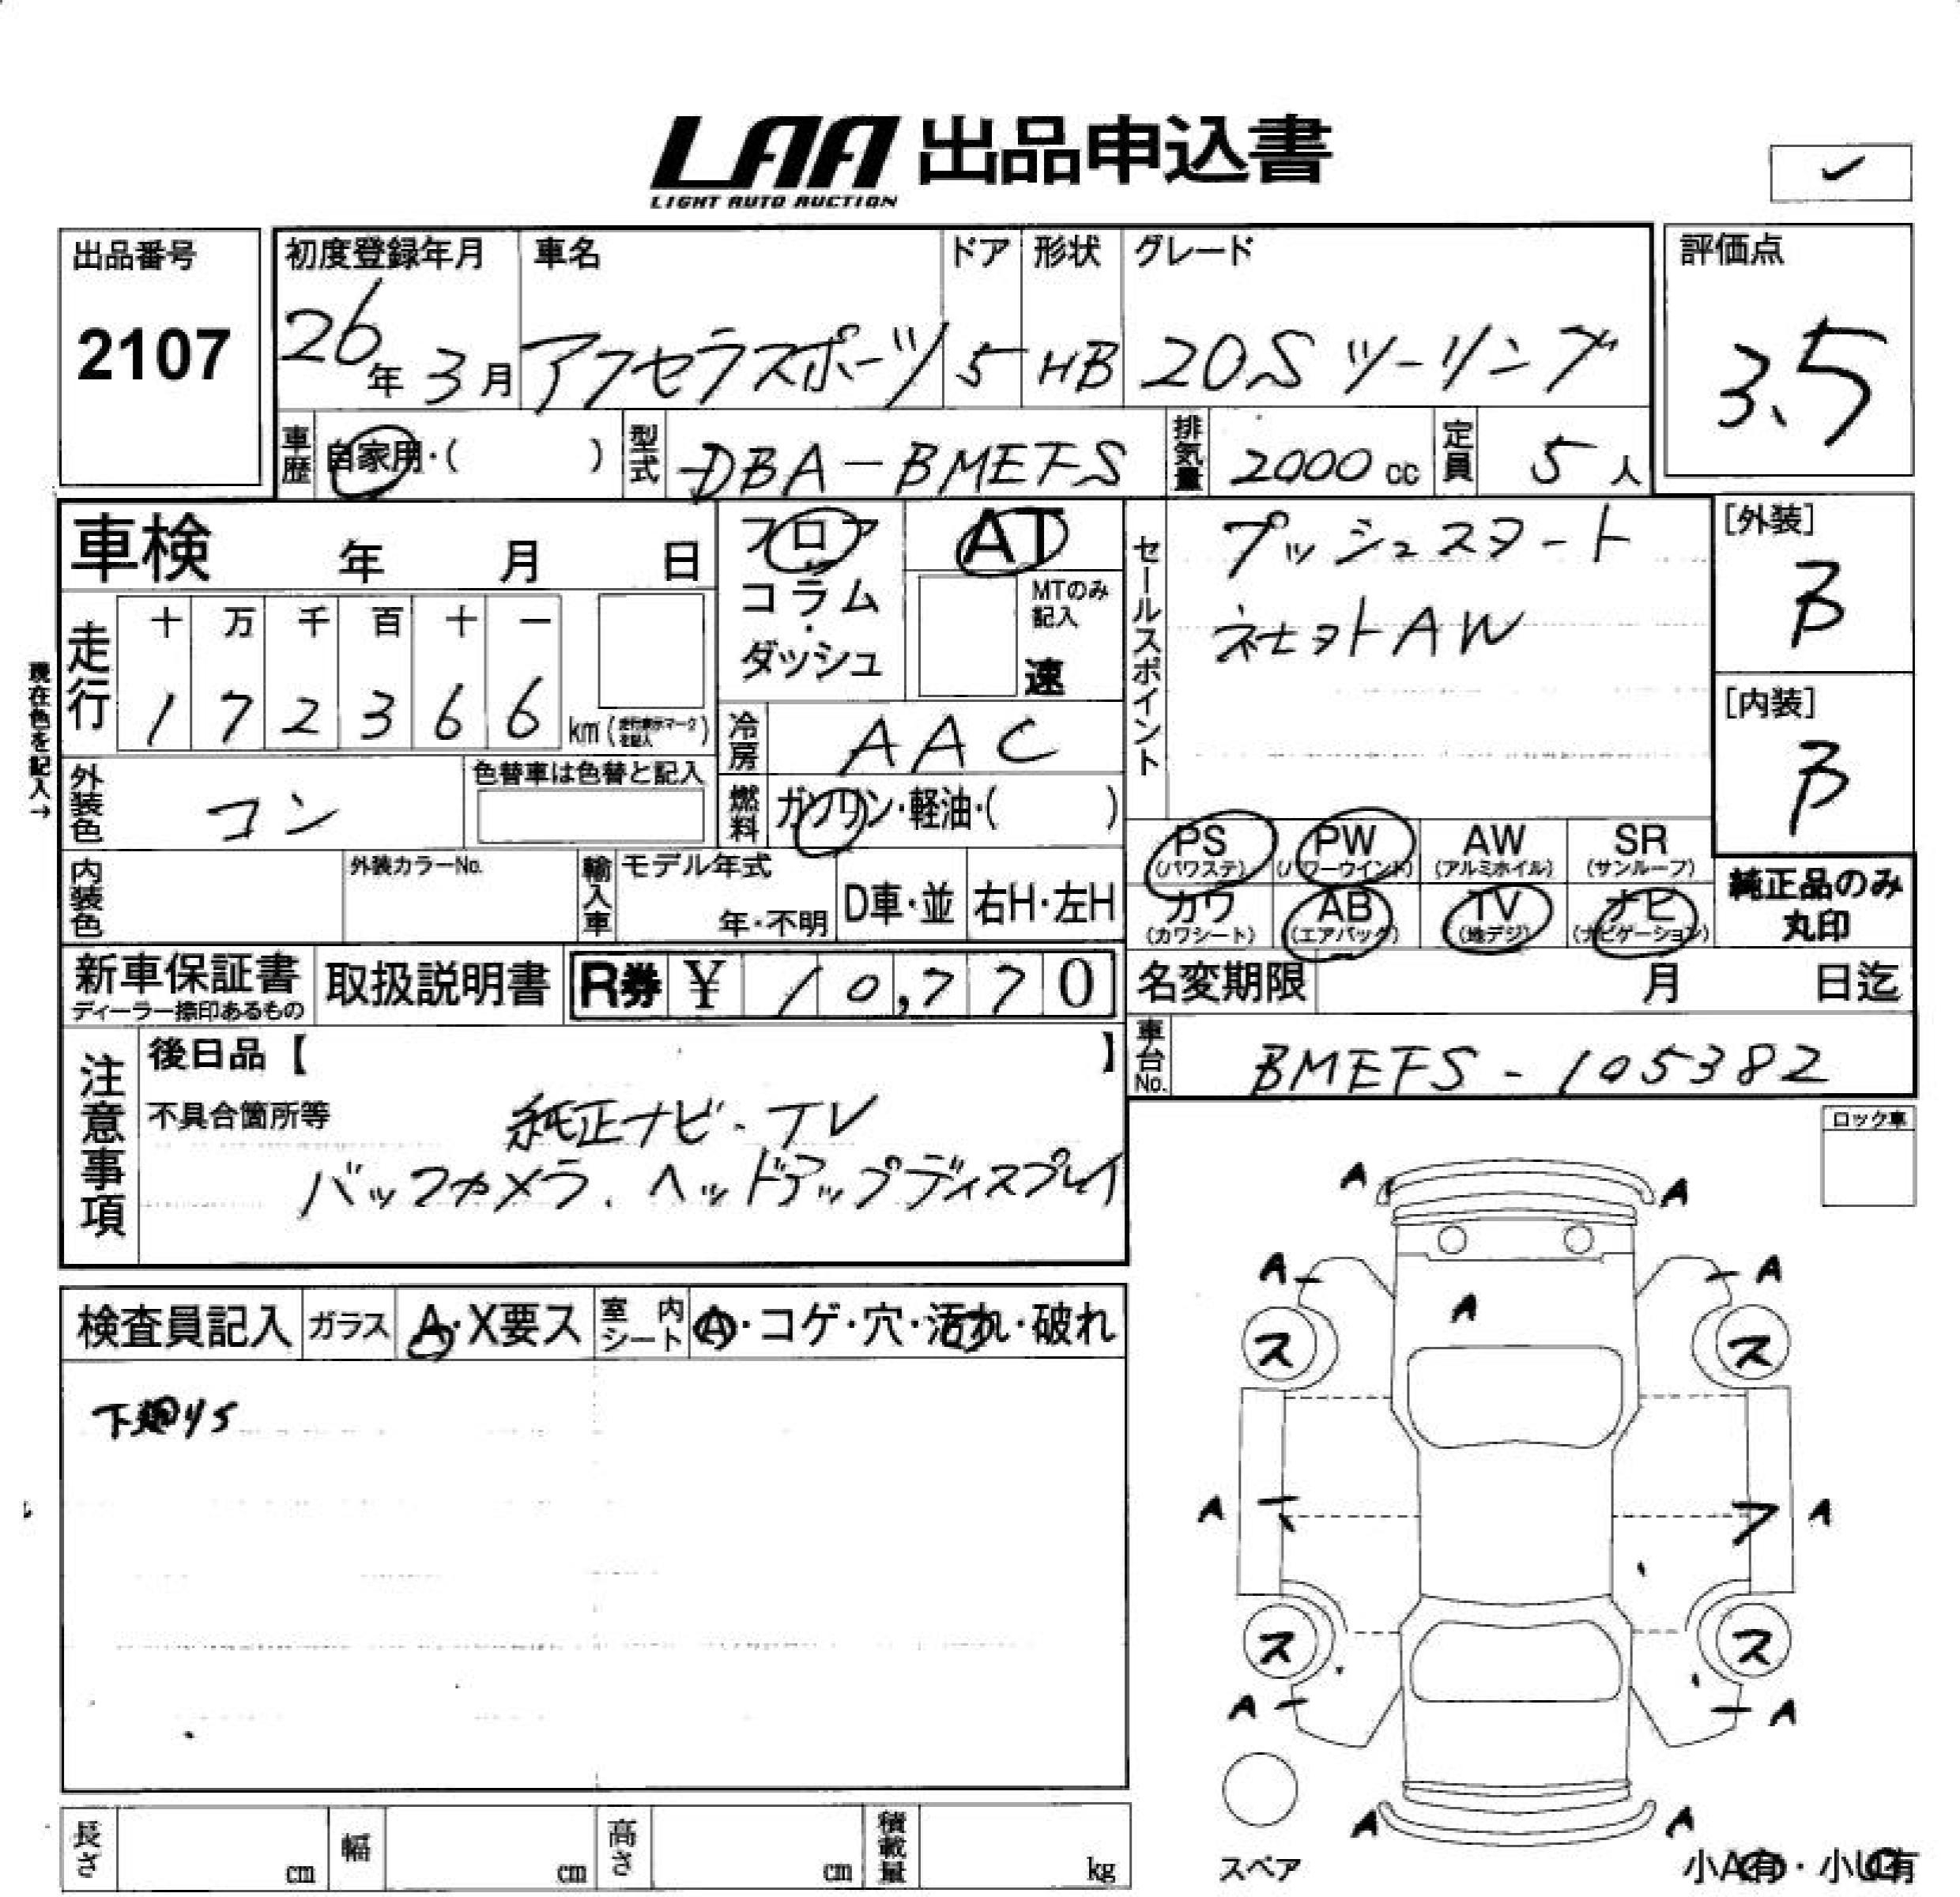 LAA 出品申込書
LIGHT AUTO AUCTION
出品番号
2107
初度登録年月 車名 ドア 形状 グレード
26年 3月 アクセラスポーツ 5 HB 20S ツーリング
評価点
3.5
車歴 自家用・( ) 型式 DBA-BMEFS 排気量 2000cc 定員 5人
車検 年 月 日
フロア
コラム
・
ダッシュ
AT
MTのみ
記入
速
セールスポイント
プッシュスタート
AW
[外装]
B
[内装]
B
現在色を記入→
走行 十 万 千 百 十 一
1 7 2 3 6 6 km
冷房 AAC
外装色 コン 色替車は色替と記入
燃料 ガソリン・軽油・( )
PS PW AW SR
(パワステ) (パワーウインド) (アルミホイル) (サンルーフ)
カワ AB TV ナビ
(カワシート) (エアバック) (地デジ) (ナビゲーション)
純正品のみ
丸印
内装色 外装カラーNo. 輸入車 モデル年式
年・不明 D車・並 右H・左H
新車保証書 取扱説明書 R券 ¥ 10,770
ディーラー捺印あるもの
名変期限 月 日迄
車台No. BMEFS-105382
注意事項
後日品【 】
不具合箇所等 純正ナビ・TV
バックカメラ、ヘッドアップディスプレイ
ロック車
検査員記入 ガラス A・X要ス 室内シート A・コゲ・穴・汚れ・破れ
下廻りS
A A
A A
A
ス ス
A A
ス ス
A A
A A
スペア
小A有・小U有
長さ cm 幅 cm 高さ cm 積載量 kg